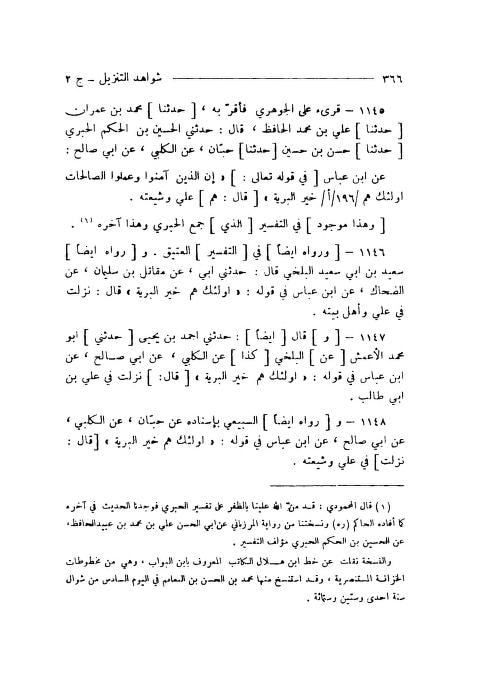 ٣٦٦ شواهد التنزيل - ج ٢
١١٤٥ - قرىء على الجوهري فأقرّ به ، [ حدثنا ] محمد بن عمران
[ حدثنا ] علي بن محمد الحافظ ، قال : حدثني الحسين بن الحكم الحبري
[ حدثنا ] حسن بن حسين [حدثنا] حبّان ، عن الكلبي ، عن ابي صالح :
عن ابن عباس [ في قوله تعالى : ] « إن الذين آمنوا وعملوا الصالحات
اولئك هم /١٩٦/أ/ خير البرية » [ قال : هم ] علي وشيعته .
[ وهذا موجود ] في التفسير [ الذي ] جمع الحبري وهذا آخره (١) .
١١٤٦ - [ ورواه ايضاً ] في [ التفسير ] العتيق . و [ رواه ايضاً ]
سعيد بن ابي سعيد البلخي قال : حدثني ابي ، عن مقاتل بن سليمان ، عن
الضحاك ، عن ابن عباس في قوله : « اولئك هم خير البرية » قال : نزلت
في علي وأهل بيته .
١١٤٧ - [ و ] قال [ ايضاً ] : حدثني احمد بن يحيى [ حدثني ] ابو
محمد الأعمش [ عن ] البلخي [ كذا ] عن الكلبي ، عن ابي صالح ، عن
ابن عباس في قوله : « اولئك هم خير البرية » [ قال: ] نزلت في علي بن
ابي طالب .
١١٤٨ - و [ رواه ايضاً ] السبيعي بإسناده عن حبّان ، عن الكلبي ،
عن ابي صالح ، عن ابن عباس في قوله : « اولئك هم خير البرية » [قال :
نزلت] في علي وشيعته .
(١) قال المحمودي : قد منّ الله علينا بالظفر على تفسير الحبري فوجدنا الحديث في آخره
كما أفاده الحاكم (ره) ونسختنا من رواية المرزباني عن ابي الحسن علي بن محمد بن عبيدالحافظ،
عن الحسين بن الحكم الحبري مؤلف التفسير .
والنسخة نقلت عن خط ابن هلال الكاتب المعروف بابن البواب ، وهي من مخطوطات
الخزانة المستنصرية ، وقد استنسخ منها محمد بن الحسن بن في اليوم السادس من شوال
سنة احدى وستين وستمائة .